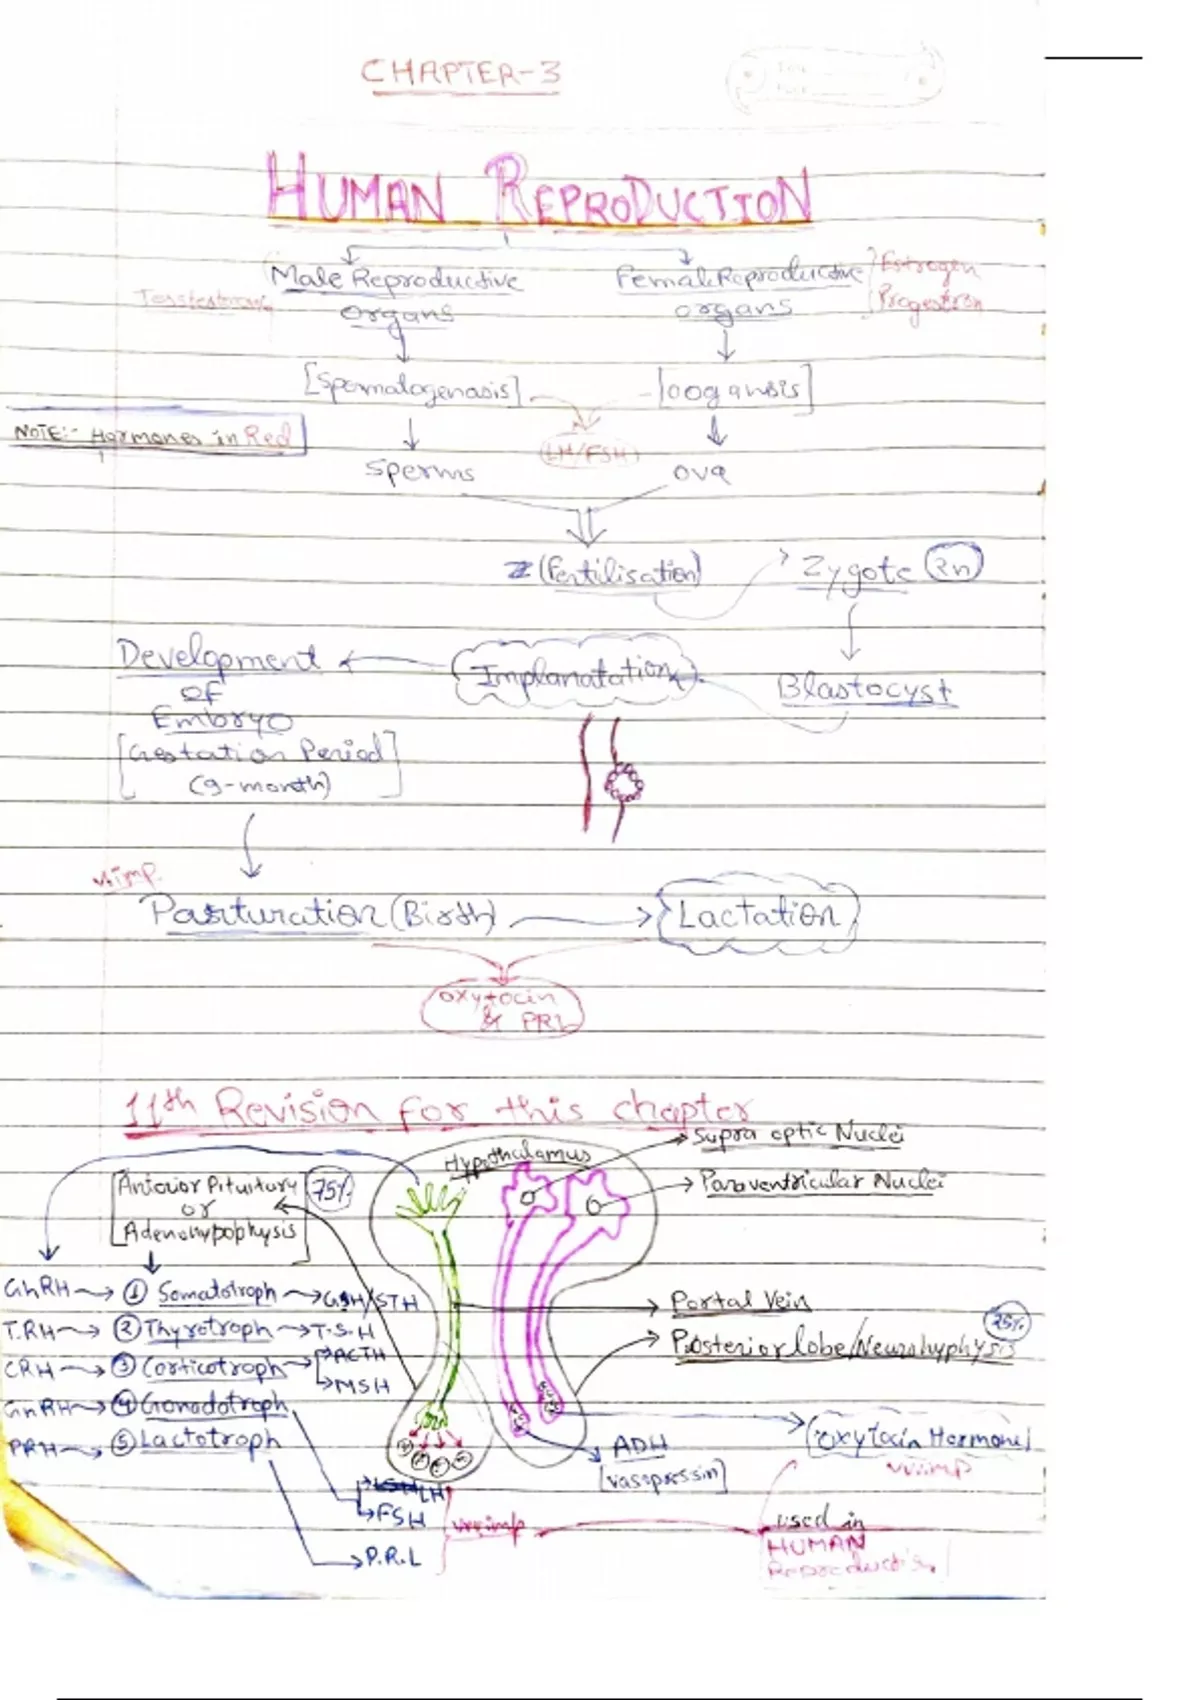 CHAPTER-3
HUMAN REPRODUCTION
Male Reproductive
organs
Female Reproductive
organs
Estrogen
Progestron
[Spermatogenasis]
[oogansis]
NOTE:- Hormones in Red
(LH/FSH)
sperms
ova
(Fertilisation)
Zygote 2n
Development
of
Embryo
[Gestation Period]
(9-month)
Implanatation
Blastocyst
v.imp.
Parturation (Birth)
Lactation
oxytocin
& PRL
11th Revision for this chapter
Hypothalamus
Supra optic Nuclei
Paraventricular Nuclei
Anterior Pituitary
or
Adenohypophysis
75%
GhRH → ① Somatotroph → GH/STH
T.RH → ② Thyrotroph → T.S.H
CRH → ③ Corticotroph → ACTH
→ MSH
GnRH → ④ Gonodotroph
PRH → ⑤ Lactotroph
Portal Vein
Posterior lobe/Neurohyphysis
25%
ADH
[vasopressin]
[oxytocin Hormone]
vvimp
LH
FSH
P.R.L
vvimp
used in
HUMAN
Reproduction